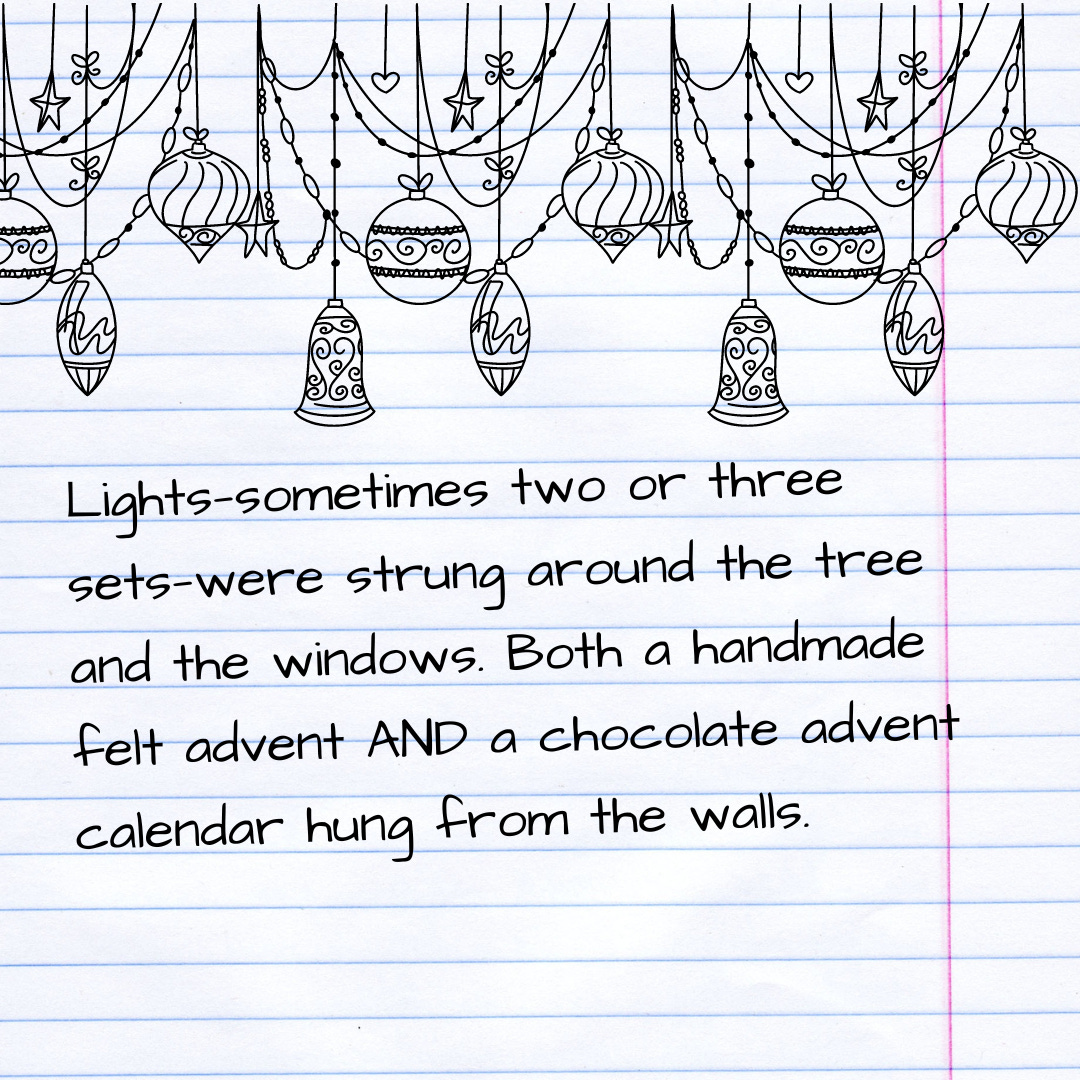 Lights-sometimes two or three
sets-were strung around the tree
and the windows. Both a handmade
felt advent AND a chocolate advent
calendar hung from the walls.